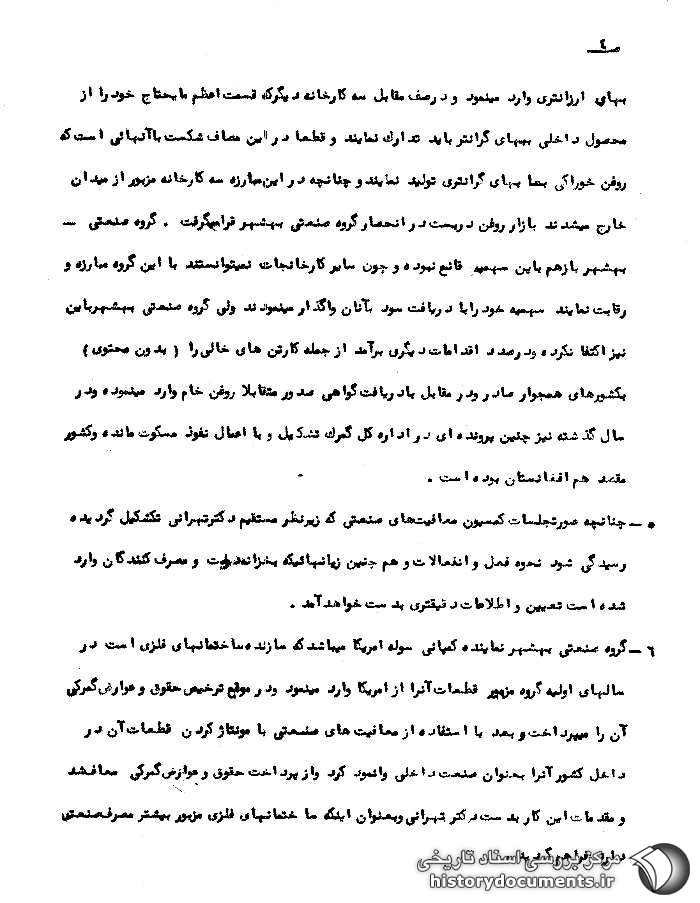 صـ ٤
ببهای ارزانتری وارد مینمود و درصف مقابل سه کارخانه دیگرکه قسمت اعظم مایحتاج خود را از
محصول داخلی ببهای گرانتر باید تدارك نمایند و قطعا در این مصاف شکست باآنهائی است که
روغن خوراکی بـا بهای گرانتری تولید نمایند و چنانچه در این مبارزه سه کارخانه مزبور از میدان
خارج میشدند بازار روغن دربست در انحصار گروه صنعتی بهشهر قرار میگرفت . گروه صنعتی ـ
بهشهر بازهم باین سهمیه قانع نبوده و چون سایر کارخانجات نمیتوانستند با این گروه مبارزه و
رقابت نمایند سهمیه خود را با دریافت سود بآنان واگذار مینمودند ولی گروه صنعتی بهشهر باین
نیز اکتفا نکرده و درصدد اقدامات دیگری برآمد از جمله کارتن های خالی را ( بدون محتوی )
بکشورهای همجوار صادر و در مقابل با دریافت گواهی صدور متقابلا روغن خام وارد مینموده و در
سال گذشته نیز چنین پرونده ای در اداره کل گمرك تشکیل و با اعمال نفوذ مسکوت مانده و کشور
مقصد هم افغانستان بوده است .
۵ ـ چنانچه صورتجلسات کمسیون معافیت‌های صنعتی که زیرنظر مستقیم دکتر تهرانی تکشکیل گردیده
رسیدگی شود نحوه فعل و انفعالات و هم چنین زیانهائیکه بخزانه دولت و مصرف کنندگان وارد
شده است تعیین و اطلاعات دقیقتری بدست خواهد آمد .
٦ ـ گروه صنعتی بهشهر نماینده کمپانی سوله امریکا میباشد که سازنده ساختمانهای فلزی است در
سالهای اولیه گروه مزبور قطعات آنرا از امریکا وارد مینمود و در موقع ترخیص حقوق و عوارض گمرکی
آن را میپرداخت و بعد با استفاده از معافیت های صنعتی با مونتاژ کردن قطعات آن در
داخل کشور آنرا بعنوان صنعت داخلی وانمود کرد و از پرداخت حقوق و عوارض گمرکی معاف شد
و مقدمات این کار بدست دکتر تهرانی و بعنوان اینکه ساختمانهای فلزی مزبور بیشتر مصرف صنعتی
دارد فراهم گردید
مرکز بررسی اسناد تاریخی
historydocuments.ir